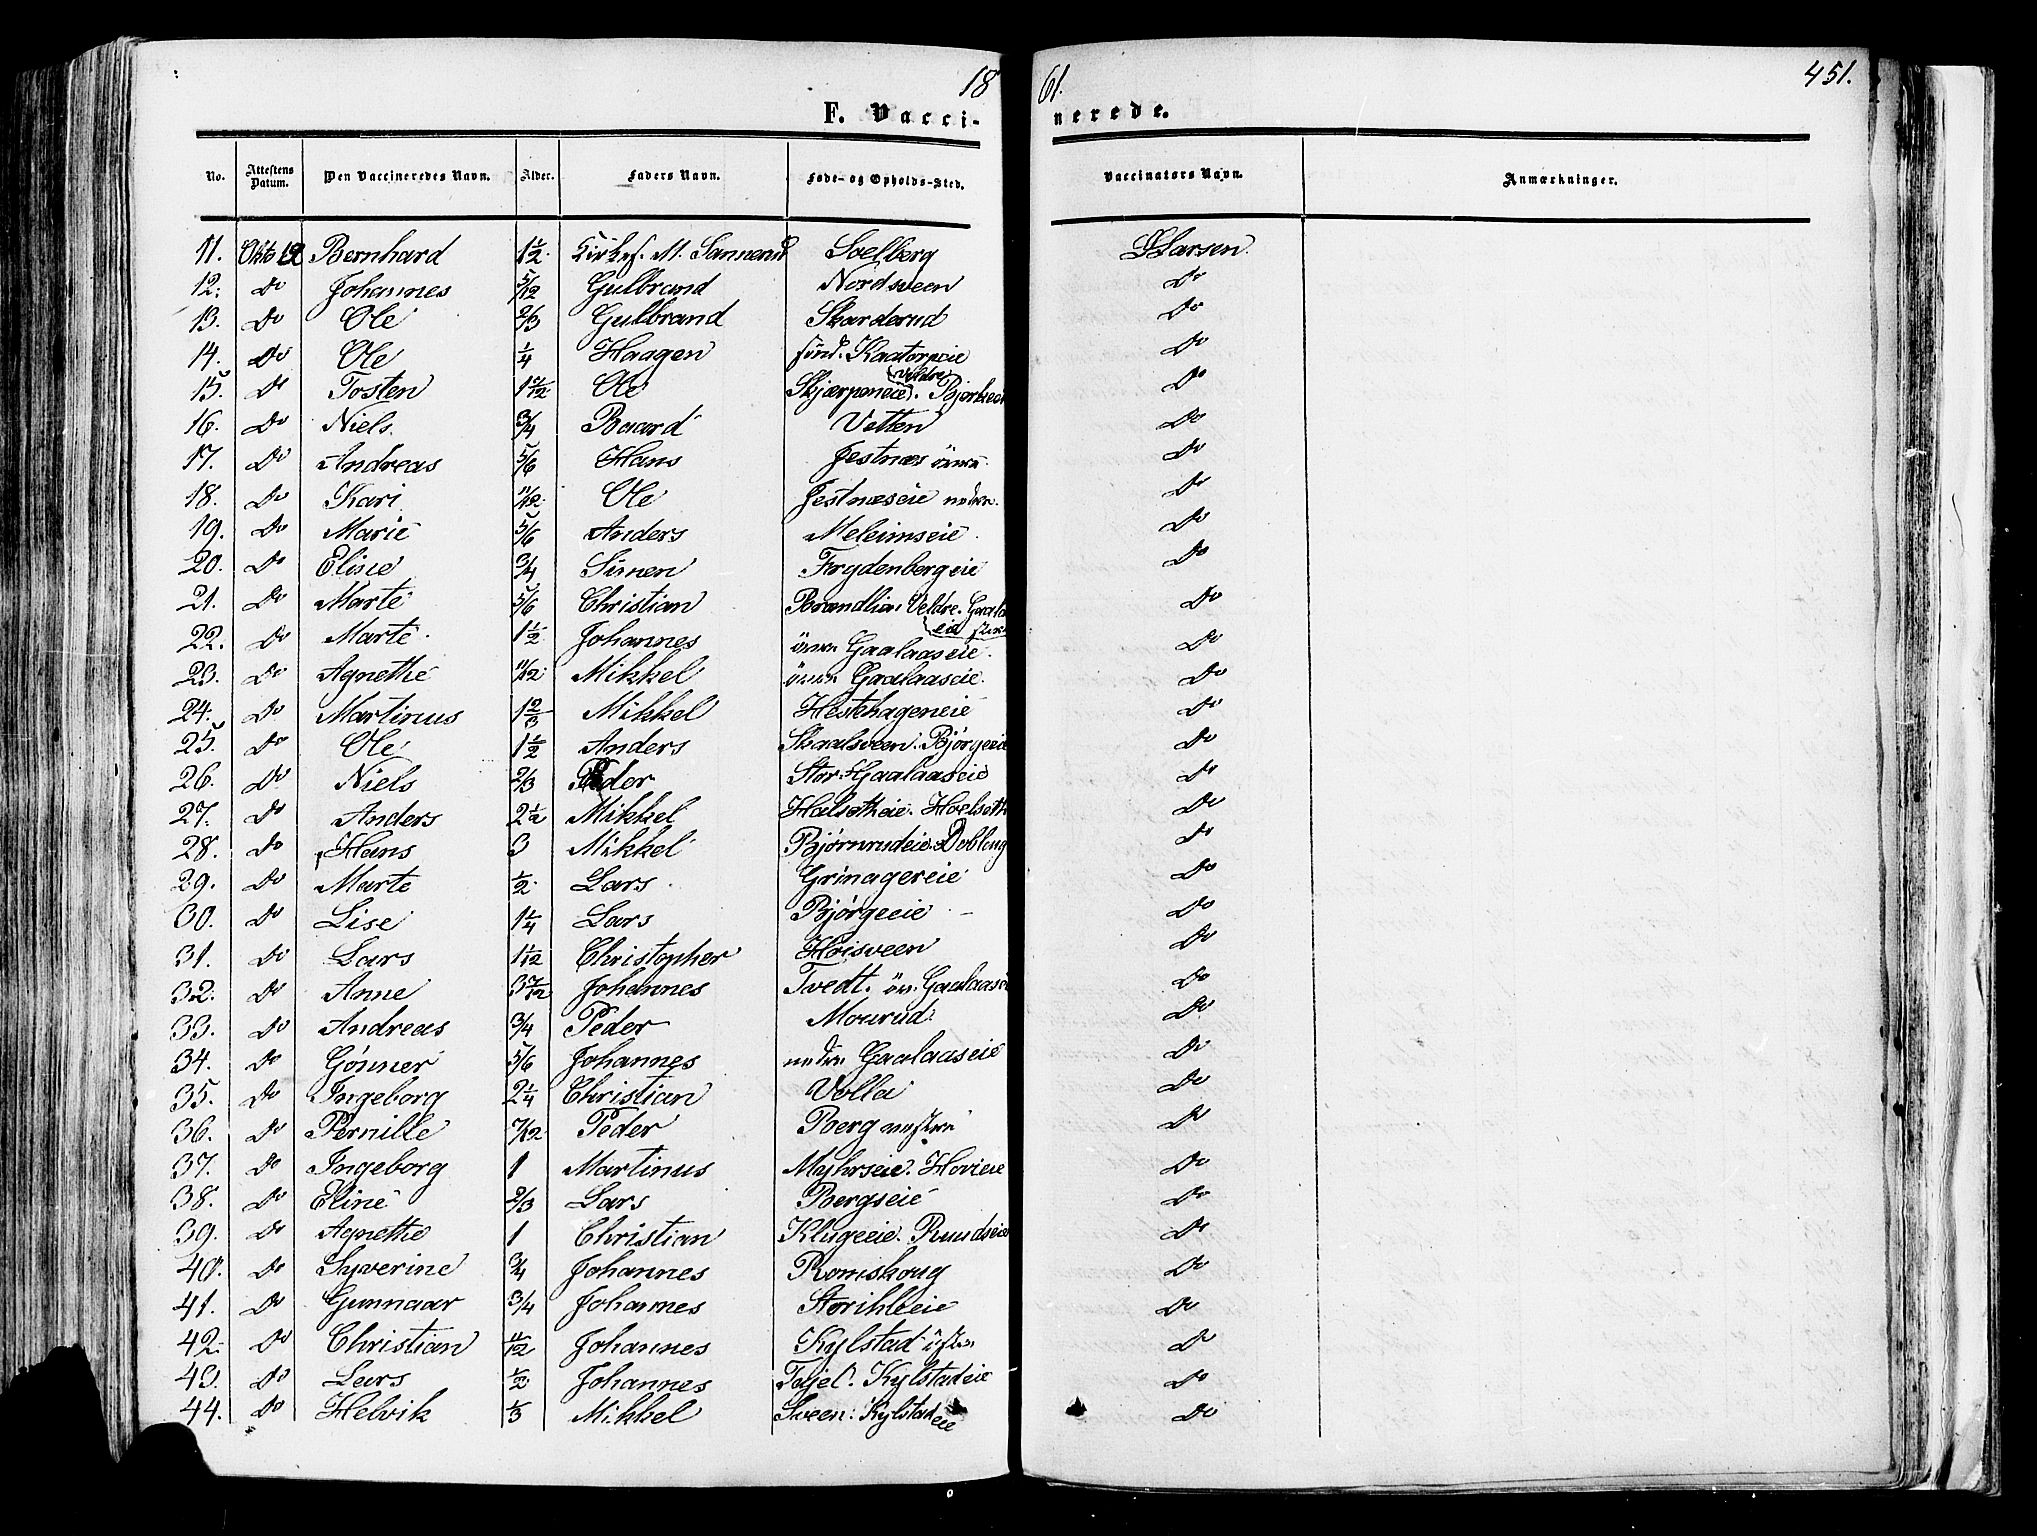 18 61. 451.
F. Vacci- nerede.
No. Attestens Datum. Den Vaccineredes Navn. Alder. Faders Navn. Føde- og Opholds-Sted. Vaccinators Navn. Anmærkninger.
11. Okto 12 Bernhard 1 1/2 M. Sannerud Soelberg Larsen.
12. Do Johannes 5/12 Gulbrand Nordsveen Do
13. Do Ole 2/3 Gulbrand Skarderud Do
14. Do Ole 1/4 Haagen sönd. Kaatorpeie Do
15. Do Tosten Ole Skjærpeneie. (Veldre) Bjørkeeie Do
16. Do Niels. 3/4 Baard Vetten Do
17. Do Andreas 5/6 Hans Jestnæs övre Do
18. Do Kari 11/12 Ole Jestnæseie nedre. Do
19. Do Marie 5/6 Anders Meleimseie Do
20. Do Eline 3/4 Simen Frydenbergeie Do
21. Do Marte 5/6 Christian Brændlia. Veldre. Do
22. Do Marte 1 1/2 Johannes övre Gaalaaseie. Do
23. Do Agnethe 11/12 Mikkel övre Gaalaaseie. Do
24. Do Martinus 1 2/3 Mikkel Hestehageneie Do
25. Do Ole 1 1/2 Anders Skaalsveen. Bjørgeeie Do
26. Do Niels 2/3 Peder Stor-Gaalaaseie Do
27. Do Anders 2 1/2 Mikkel Hoelsetheie. Hoelseth Do
28. Do Hans 3 Mikkel Bjørnrudeie. Dobloug Do
29. Do Marte 1/2 Lars Grinagereie Do
30. Do Lise 1 1/4 Lars Bjørgeeie Do
31. Do Lars 1 1/12 Christopher Høisveen Do
32. Do Anne 3 7/12 Johannes Tvedt. öv. Gaalaasei Do
33. Do Andreas 3/4 Peder Mourud Do
34. Do Gönner 5/6 Johannes nedre Gaalaaseie Do
35. Do Ingeborg 2 1/4 Christian Volla Do
36. Do Pernille 7/12 Peder Berg vestre Do
37. Do Ingeborg 1 Martinus Myhrseie. Hovieie Do
38. Do Eline 2/3 Lars Bergseie Do
39. Do Agnethe 1 Christian Klugeeie. Ruudseie Do
40. Do Syverine 3/4 Johannes Romskoug Do
41. Do Gunnaar 3/4 Johannes Storihleeie Do
42. Do Christian 11/12 Johannes Kylstad östre Do
43. Do Lars 1/2 Johannes Tajet. Kylstadeie Do
44. Do Helvik 1/3 Mikkel Sveen: Kylstadeie Do